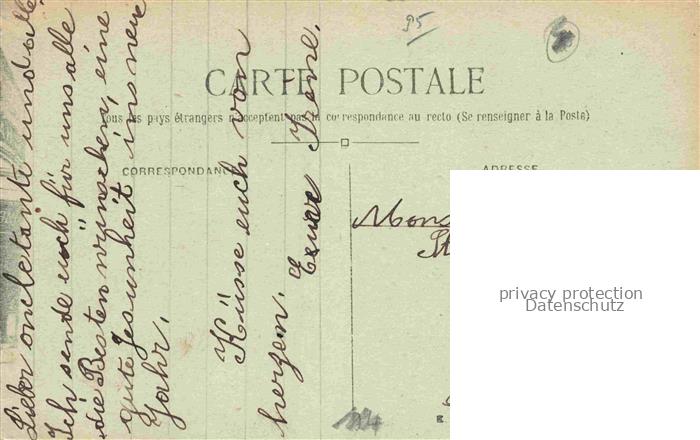 95
CARTE POSTALE
Tous les pays étrangers n'acceptent pas la correspondance au recto (Se renseigner à la Poste)
CORRESPONDANCE
ADRESSE
Lieber oncletante und alle
Ich sende euch für uns alle
die Besten wünschen, eine
gute Gesunheit ins neue
Jahr.
Küsse euch vom
herzem.
Eure Irene.
Mons
St
privacy protection
Datenschutz